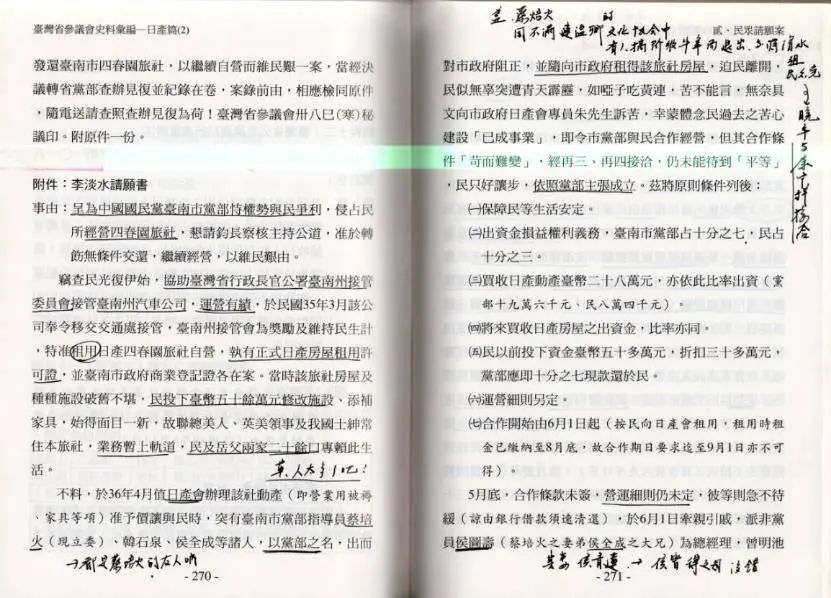 臺灣省參議會史料彙編—日產篇(2)
發還臺南市四春園旅社，以繼續自營而維民艱一案，當經決
議轉省黨部查辦見復並紀錄在卷，案錄前由，相應檢同原件
，隨電送請查照查辦見復為荷！臺灣省參議會卅八巳(寒)秘
議印。附原件一份。
附件：李淡水請願書
事由：呈為中國國民黨臺南市黨部恃權勢與民爭利，侵占民
所經營四春園旅社，懇請鈞長察核主持公道，准於轉
飭無條件交還，繼續經營，以維民艱由。
竊查民光復伊始，協助臺灣省行政長官公署臺南州接管
委員會接管臺南州汽車公司，運營有績，於民國35年3月該公
司奉令移交交通處接管，臺南州接管會為獎勵及維持民生計
，特准租用日產四春園旅社自營，執有正式日產房屋租用許
可證，並臺南市政府商業登記證各在案。當時該旅社房屋及
種種施設破舊不堪，民投下臺幣五十餘萬元修改施設、添補
家具，始得面目一新，故聯總美人、英美領事及我國士紳常
住本旅社，業務暫上軌道，民及岳父兩家二十餘口專賴此生
活。
不料，於36年4月值日產會辦理該社動產（即營業用被褥
、家具等項）准予價讓與民時，突有臺南市黨部指導員蔡培
火（現立委）、韓石泉、侯全成等諸人，以黨部之名，出而
→都是蔡培火的左人
- 270 -
貳、民眾請願案
蔡培火的
同不滿連溫卿 文化協會中
對市政府阻止，並隨向市政府租得該旅社房屋，迫民離開，
民似無辜突遭青天霹靂，如啞子吃黃連，苦不能言，無奈具
文向市政府日產會專員朱先生訴苦，幸蒙體念民過去之苦心
建設「已成事業」，即令市黨部與民合作經營，但其合作條
件「苛而難變」，經再三、再四接洽，仍未能待到「平等」
，民只好讓步，依照黨部主張成立。茲將原則條件列後：
㈠保障民等生活安定。
㈡出資金損益權利義務，臺南市黨部占十分之七，民占
十分之三。
㈢買收日產動產臺幣二十八萬元，亦依此比率出資（黨
部十九萬六千元、民八萬四千元）。
㈣將來買收日產房屋之出資金，比率亦同。
㈤民以前投下資金臺幣五十多萬元，折扣三十多萬元，
黨部應即十分之七現款還於民。
㈥運營細則另定。
㈦合作開始由6月1日起（按民向日產會租用，租用時租
金已繳納至8月底，故合作期日要求迄至9月1日亦不可
得）。
5月底，合作條款未簽，營運細則仍未定，彼等則急不待
緩（諒由銀行借款須速清還），於6月1日牽親引戚，派非黨
員侯圖壽（蔡培火之妻弟侯全成之大兄）為總經理，曾明池
- 271 -